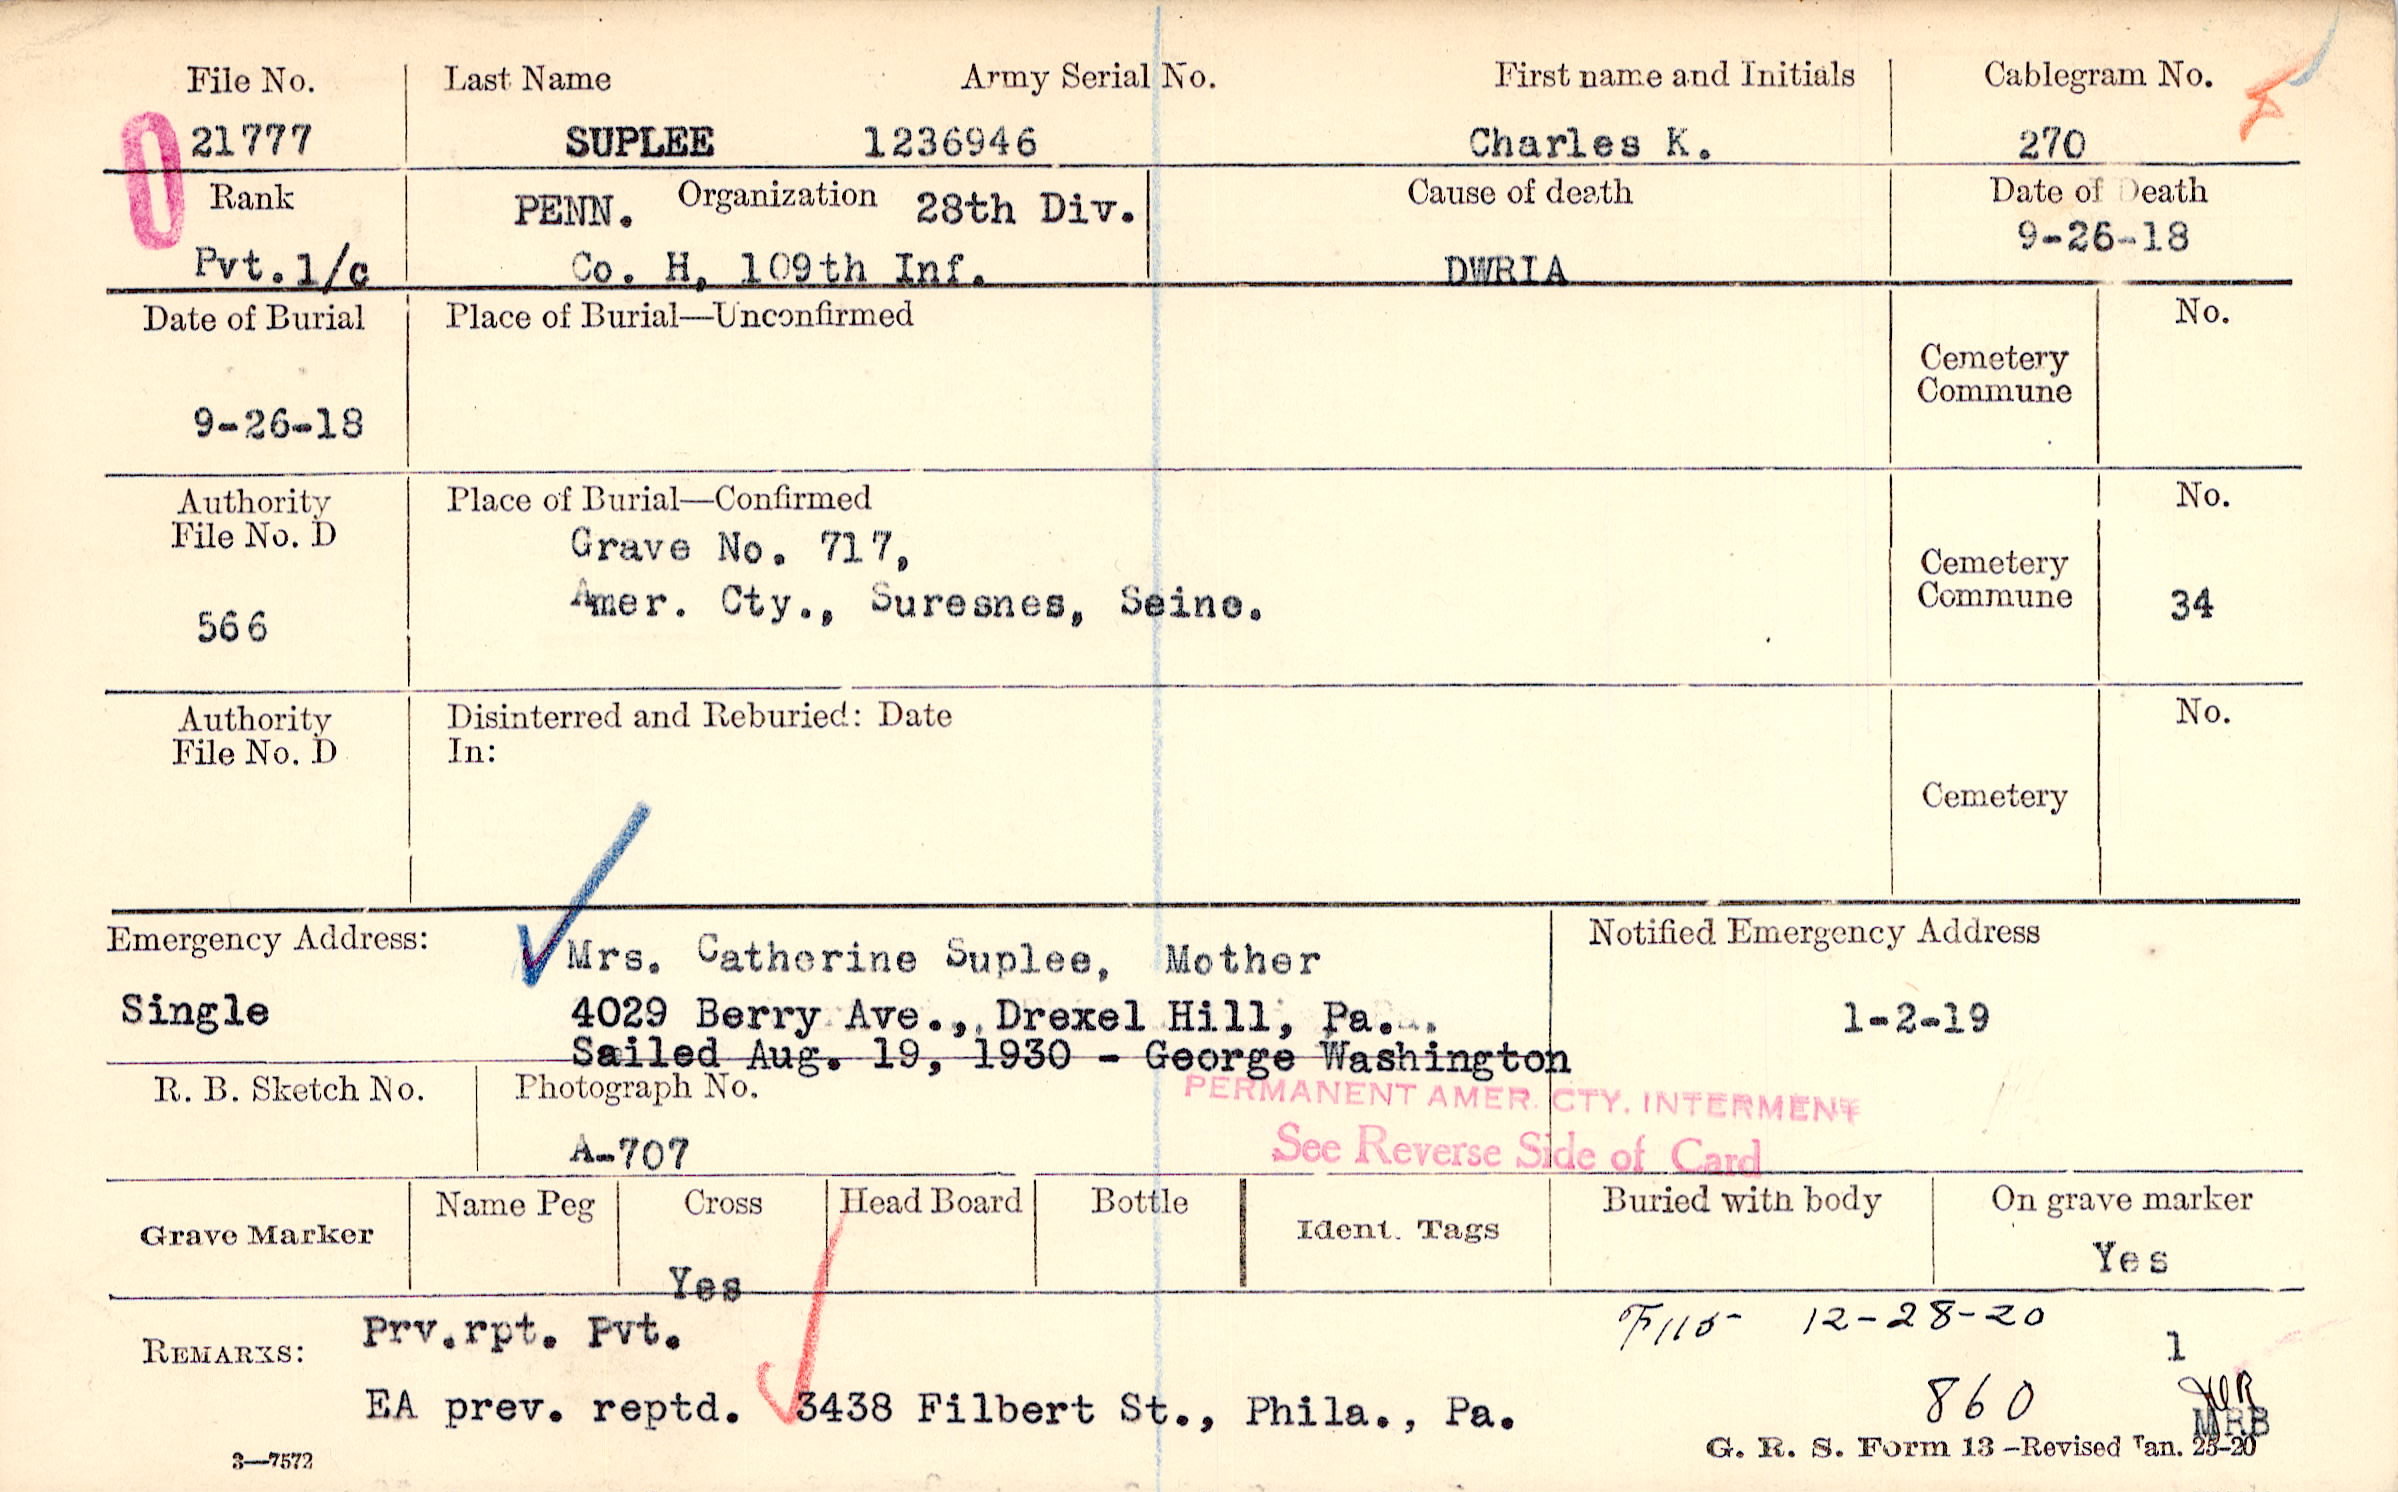 File No. Last Name Army Serial No. First name and Initials Cablegram No.
21777 SUPLEE 1236946 Charles K. 270
Rank PENN. Organization 28th Div. Cause of death Date of Death
9-26-18
Pvt.1/c Co. H, 109th Inf. DWRIA
Date of Burial Place of Burial—Unconfirmed No.
Cemetery
Commune
9-26-18
Authority Place of Burial—Confirmed No.
File No. D Grave No. 717,
Cemetery
Amer. Cty., Suresnes, Seine. Commune 34
566
Authority Disinterred and Reburied: Date No.
File No. D In:
Cemetery
Emergency Address: Mrs. Catherine Suplee, Mother Notified Emergency Address
Single 4029 Berry Ave., Drexel Hill, Pa. 1-2-19
Sailed Aug. 19, 1930 - George Washington
R. B. Sketch No. Photograph No. PERMANENT AMER. CTY. INTERMENT
A-707 See Reverse Side of Card
Name Peg Cross Head Board Bottle Buried with body On grave marker
Grave Marker Ident. Tags
Yes Yes
Prv.rpt. Pvt. 12-28-20
REMARKS: 1
EA prev. reptd. 3438 Filbert St., Phila., Pa. 860
MRB
3—7572 G. R. S. Form 13—Revised Jan. 25-20